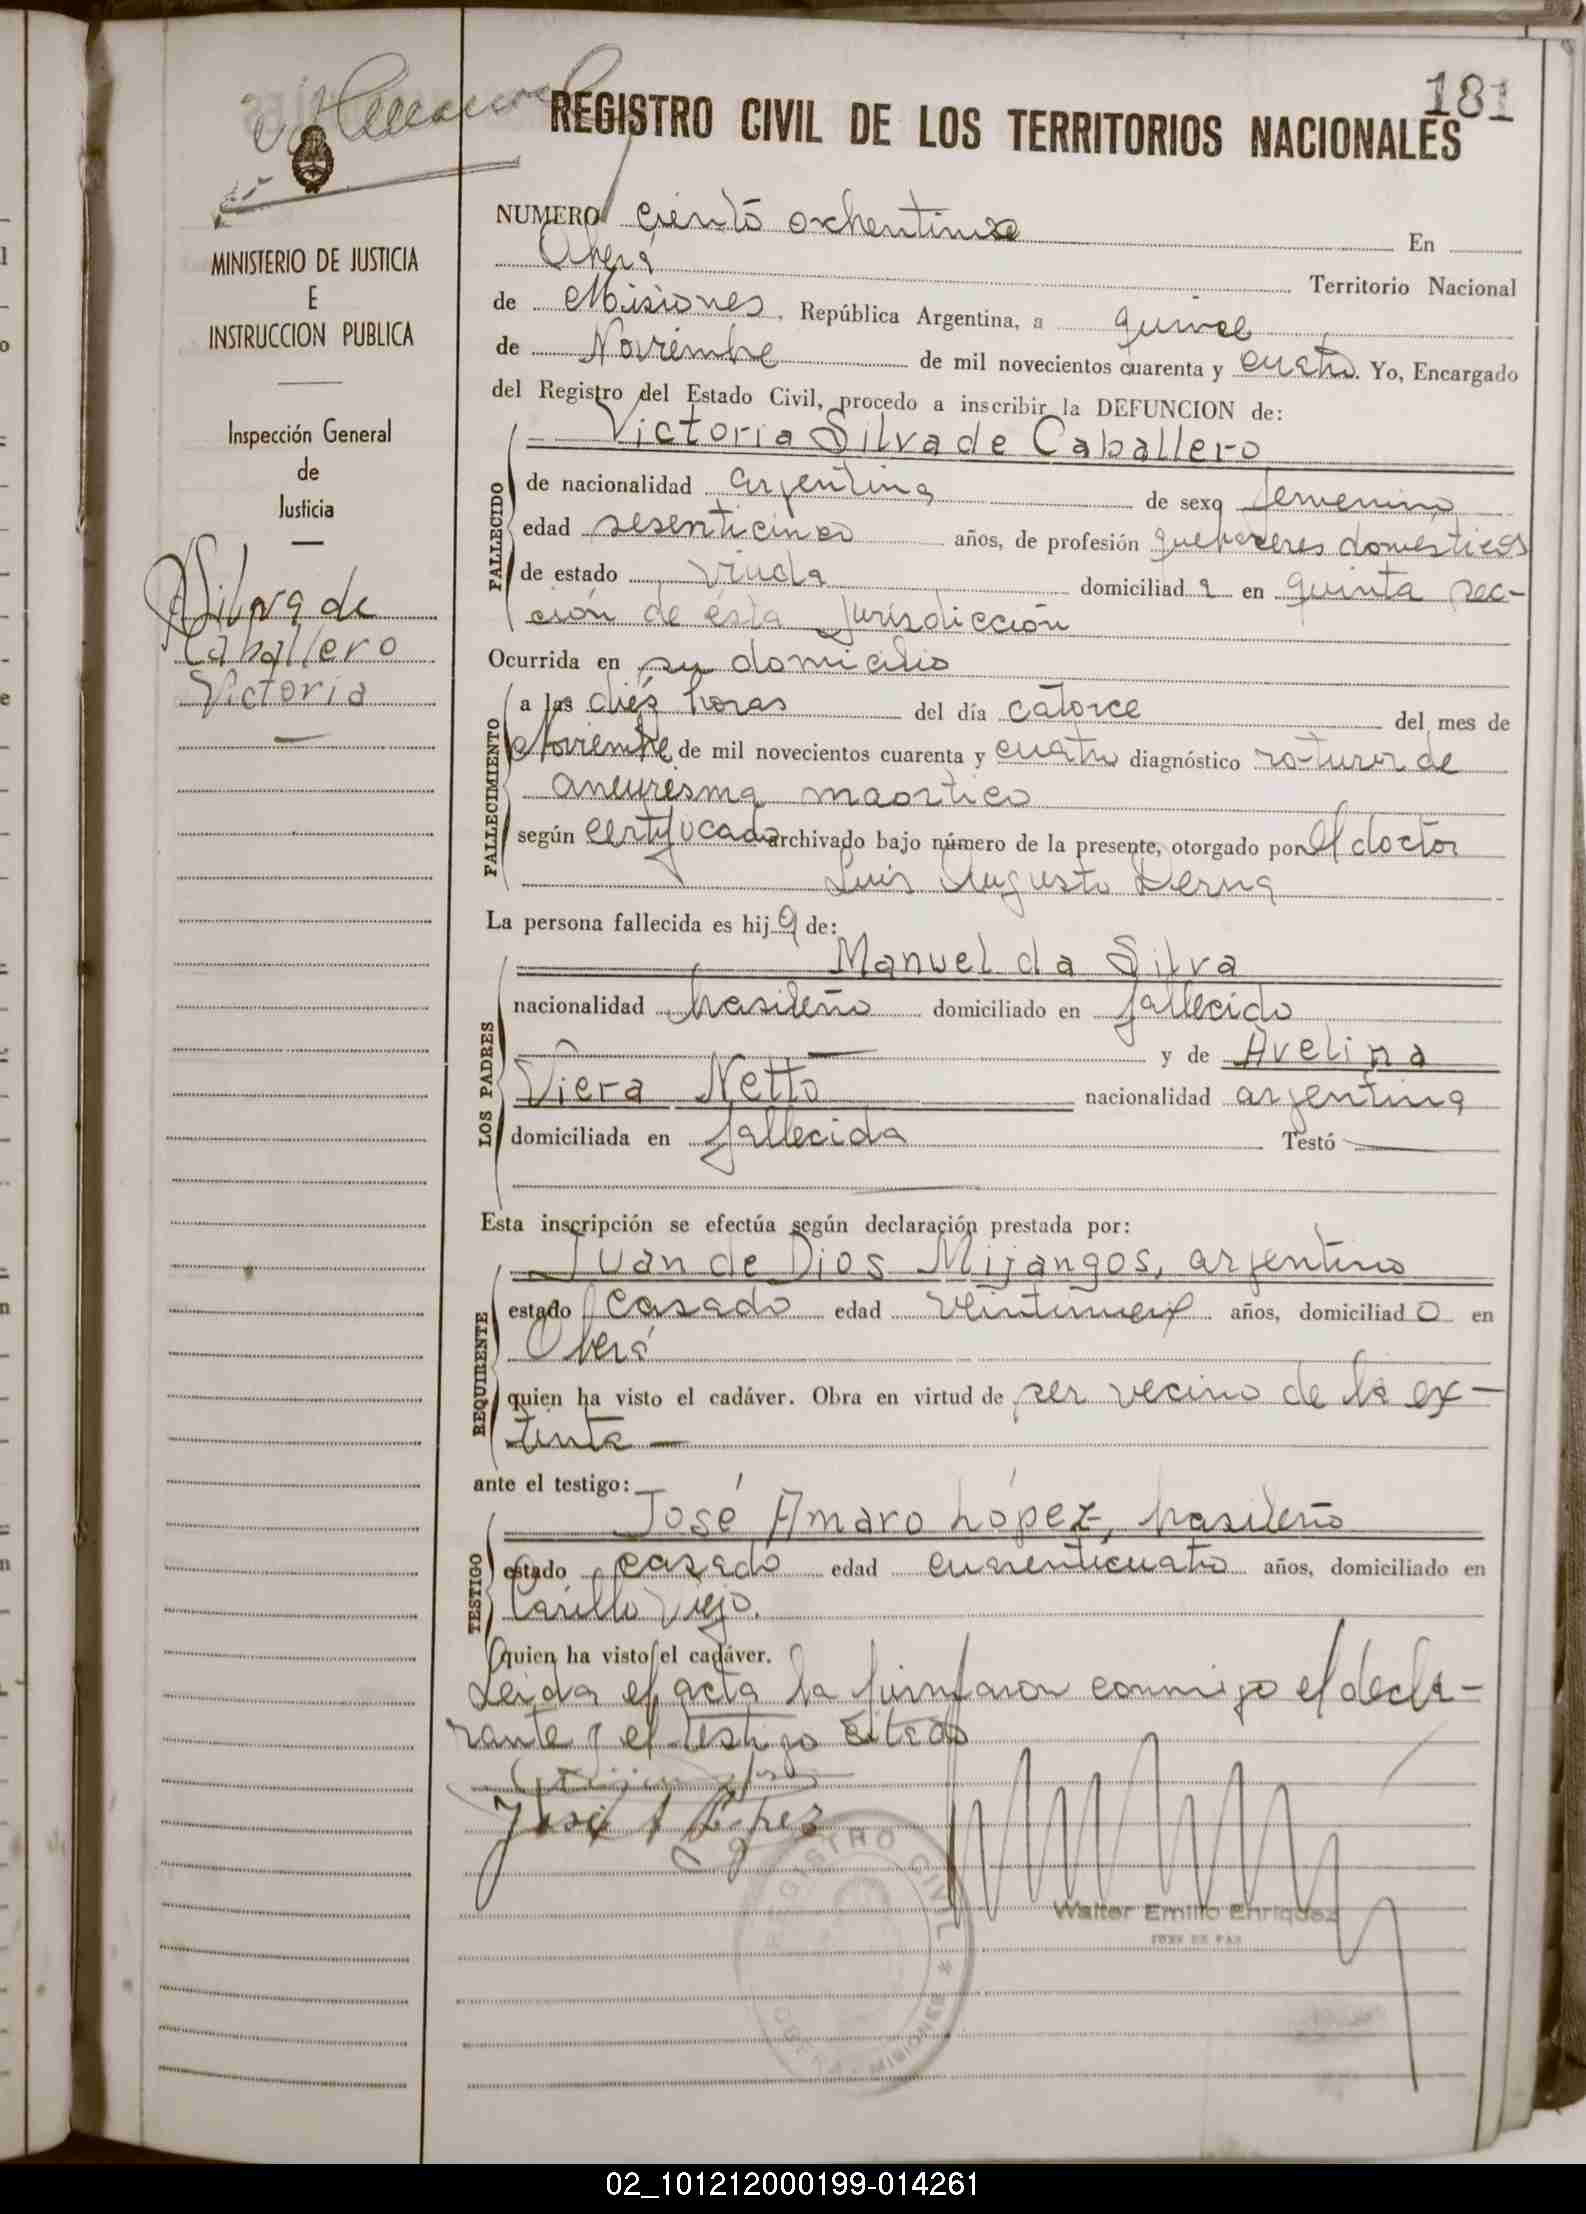 181
REGISTRO CIVIL DE LOS TERRITORIOS NACIONALES
MINISTERIO DE JUSTICIA
E
INSTRUCCION PUBLICA
Inspección General
de
Justicia
Silva de
Caballero
Victoria
NUMERO ciento ochentiuno En
Oberá Territorio Nacional
de Misiones, República Argentina, a quince
de Noviembre de mil novecientos cuarenta y cuatro. Yo, Encargado
del Registro del Estado Civil, procedo a inscribir la DEFUNCION de:
Victoria Silva de Caballero
FALLECIDO
de nacionalidad argentina de sexo femenino
edad sesenticinco años, de profesión quehaceres domésticos
de estado viuda domiciliad a en quinta sec-
ción de ésta jurisdicción
Ocurrida en su domicilio
FALLECIMIENTO
a las diéz horas del día catorce del mes de
Noviembre de mil novecientos cuarenta y cuatro diagnóstico rotura de
aneurisma maortico
según certificado archivado bajo número de la presente, otorgado por el doctor
Luis Augusto Derna
La persona fallecida es hij a de:
Manuel da Silva
LOS PADRES
nacionalidad brasileño domiciliado en fallecido
y de Avelina
Viera Netto nacionalidad argentina
domiciliada en fallecida Testó
Esta inscripción se efectúa según declaración prestada por:
Juan de Dios Mijangos, argentino
REQUIRENTE
estado casado edad años, domiciliad o en
Oberá
quien ha visto el cadáver. Obra en virtud de ser vecino de la ex-
tinta —
ante el testigo:
José Amaro López, brasileño
TESTIGO
estado casado edad cuarenticuatro años, domiciliado en
Cerillo Viejo.
quien ha visto el cadáver.
Leida el acta la firmaron conmigo el decla-
rante y el testigo citado
José A López
REGISTRO CIVIL
MISIONES
Walter Emilio Enriquez
JUEZ DE PAZ
02_101212000199-014261